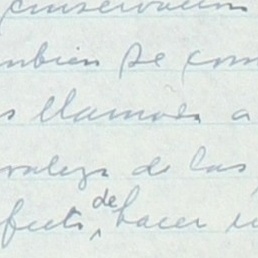 conservación
ambien se com
s llamada a
raleza de las
efecto de hacer u